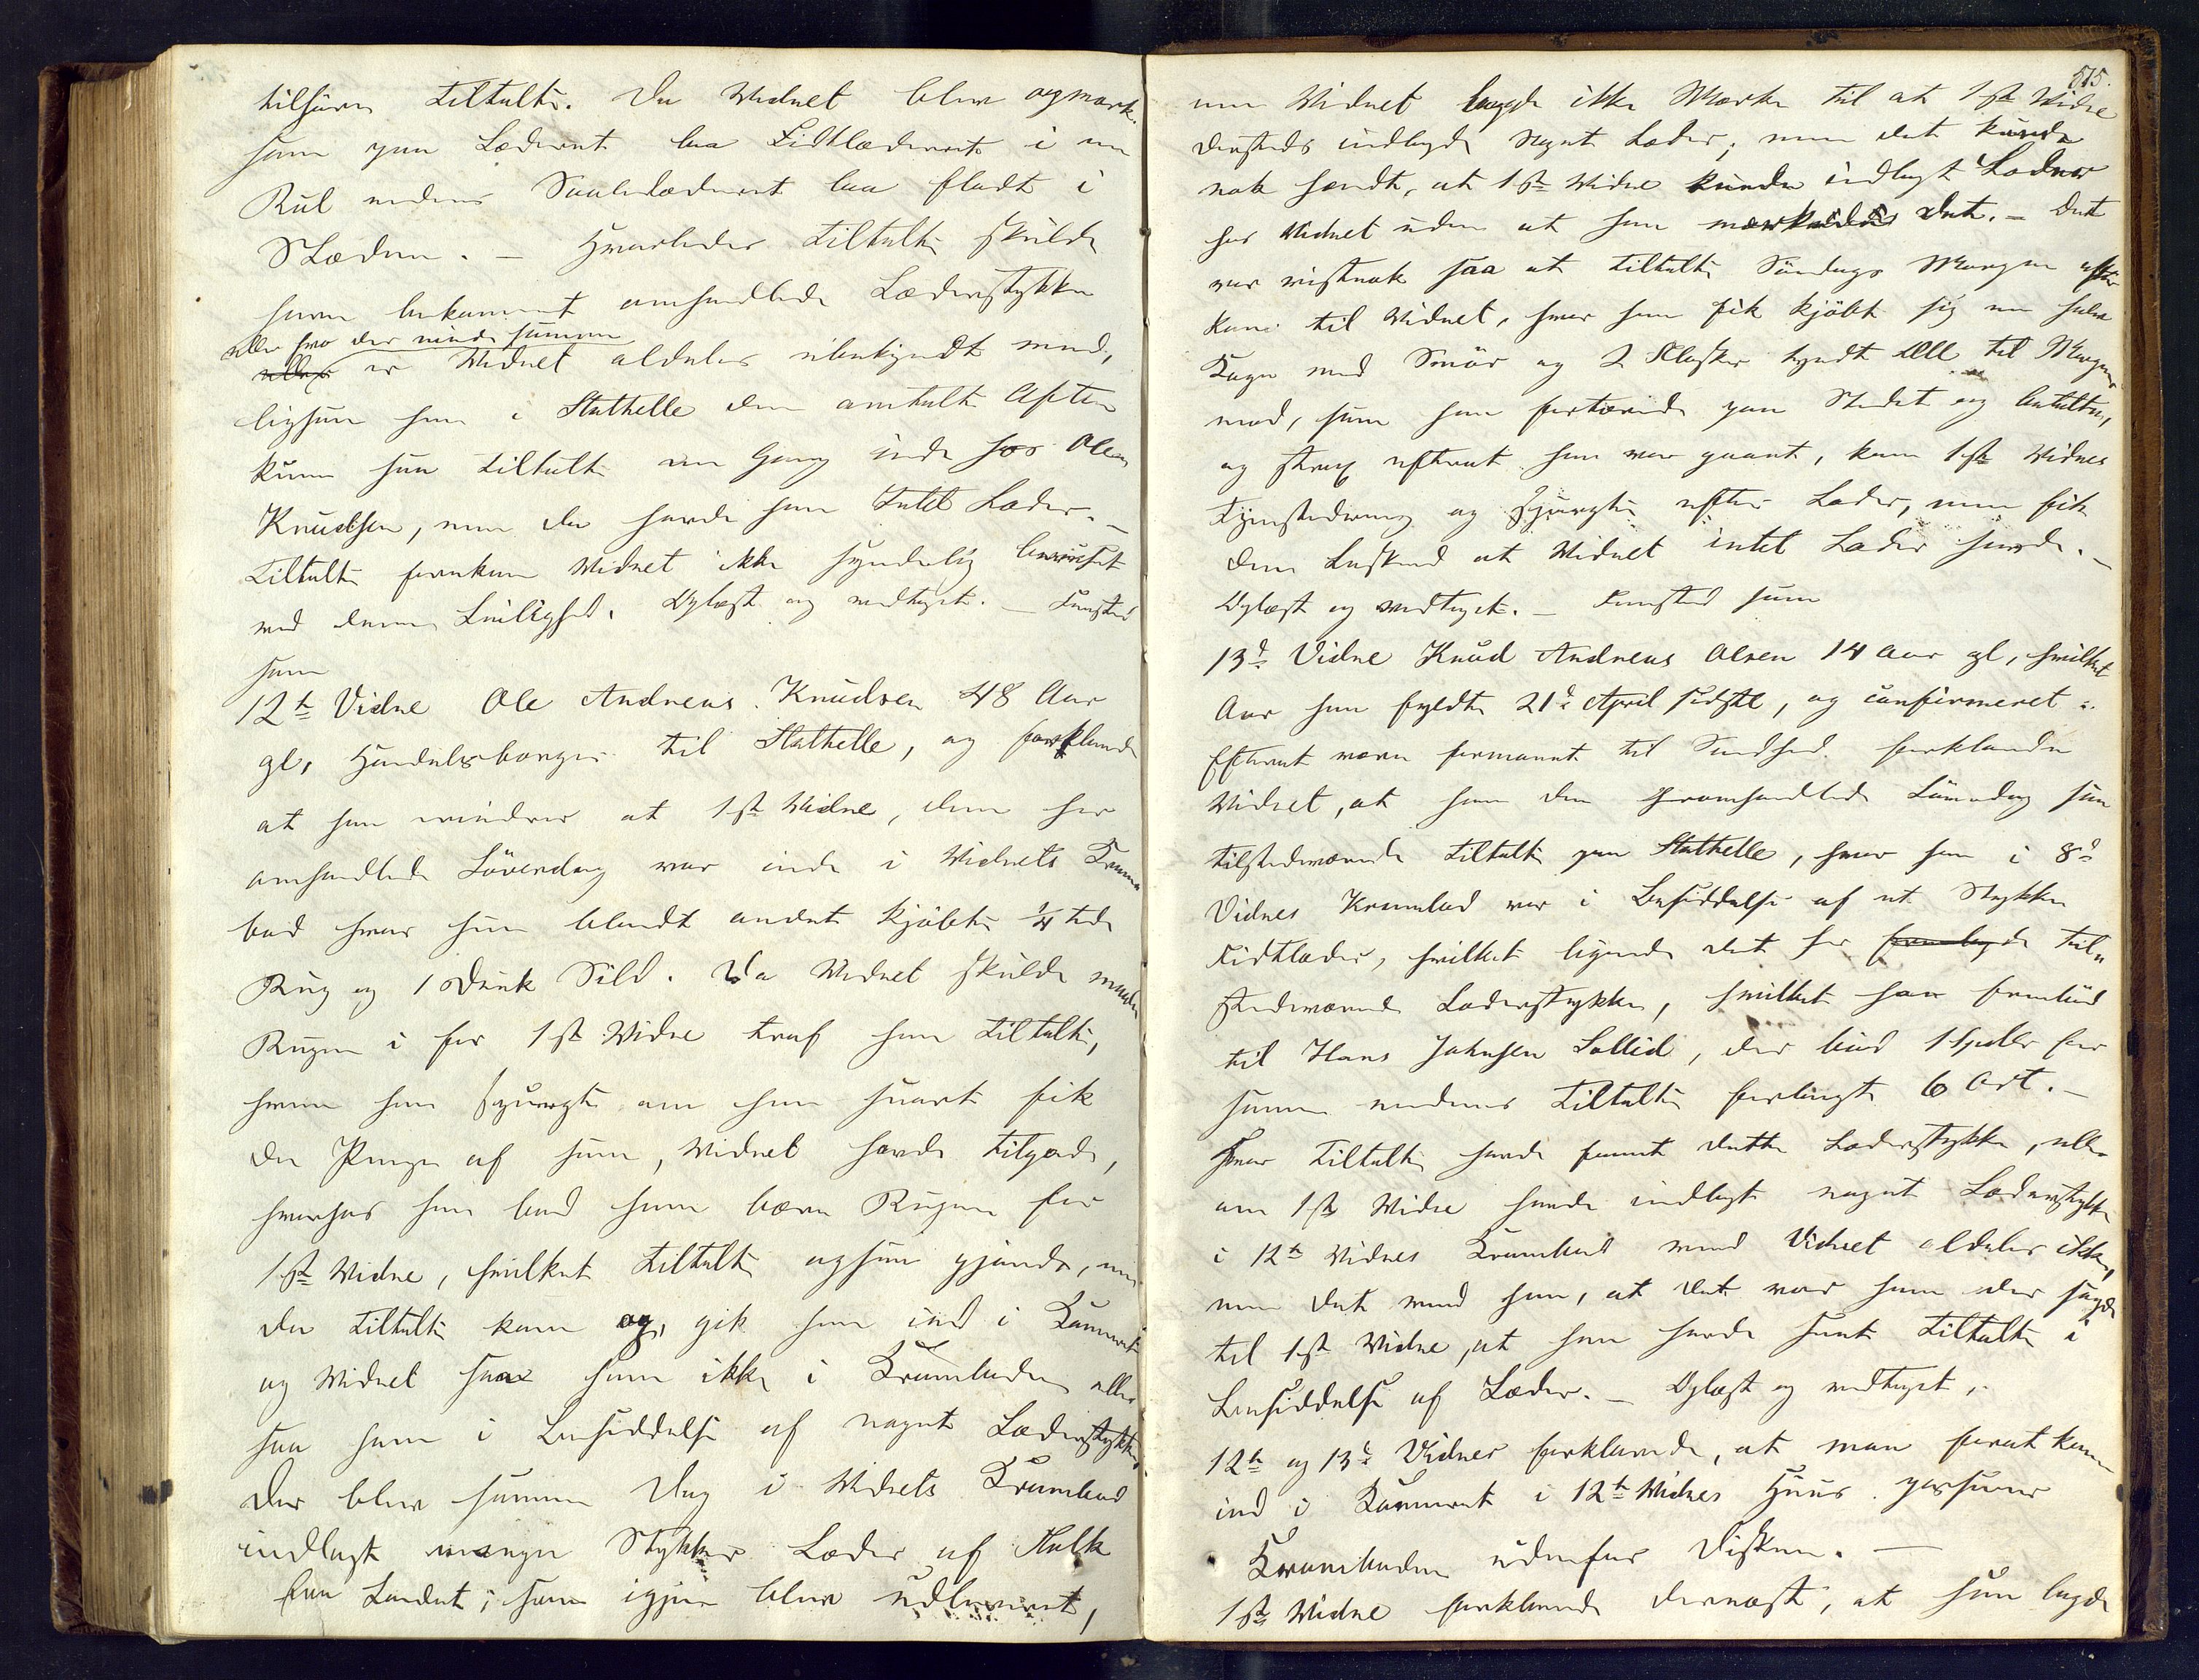 tilhører Tiltalte. Da Vidnet blev opmærk-
som paa Læderet laa Fidtlæderet i en
Rul medens Saalelæderet laa fladt i
Slæden. – Hvorledes Tiltalte skulde
have bekommet omhandlede Læderstykker
eller hvo der eiede samme
er Vidnet aldeles ubekjendt med,
ligesom han i Stathelle den omtalte Aften
kun saa Tiltalte en Gang inde hos Ole
Knudsen, men da havde han Intet Læder. –
Tiltalte forekom Vidnet ikke synderlig beruset
ved denne Leilighed. Oplæst og vedtaget. – Fremstod
som
12te Vidne Ole Andreas Knudsen 48 Aar
gl, Handelsborger til Stathelle, og forklarede
at han erindrer at 1ste Vidne, den her
omhandlede Löverdag var inde i Vidnets Kram-
bod hvor han blandt andet kjøbte 1/4 Tde
Rug og 1 Dunk Sild. Da Vidnet skulde maale
Rugen i for 1ste Vidne traf han Tiltalte,
hvem han spurgte om han snart fik
de Penge af ham, Vidnet havde tilgode,
hvorhos han bad ham bære Rugen for
1ste Vidne, hvilket Tiltalte ogsaa gjorde, men
da Tiltalte kom op, gik han ind i Kammeret
og Vidnet saae ham ikke i Kramboden eller
saa ham i Besiddelse af noget Læderstykke,
Der blev samme Dag i Vidnets Krambod
indlagt mange Stykker Læder af Folk
fra Landet, som igjen blev udleveret,
515.
men Vidnet lagde ikke Mærke til at 1ste Vidne
dersteds indlagde noget Læder; men det kunde
nok hændt, at 1ste Vidne kunde indlagt Læder
hos Vidnet uden at han mærkede det. – Det
var vistnok saa at Tiltalte Søndags Morgen efter
kom til Vidnet, hvor han fik kjøbt sig en halv
Kage med Smör og 2 Flasker tyndt Øll til Morgen-
mad, som han fortærede paa Stedet og betalte,
og strax efterat han var gaaet, kom 1ste Vidnes
Tjenestedreng og spurgte efter Læder, men fik
den Besked at Vidnet intet Læder havde. –
Oplæst og vedtaget. – Fremstod som
13de Vidne Knud Andreas Olsen 14 Aar gl, hvilket
Aar han fyldte 21de April sidstl, og confirmeret.
Efterat være formanet til Sandhed forklarede
Vidnet, at han den heromhandlede Löverdag saa
tilstedeværende Tiltalte paa Stathelle, hvor han i 8de
Vidnes Krambod var i Besiddelse af et Stykke
Fidtlæder, hvilket lignede det her til-
stedeværende Læderstykke, hvilket han fremböd
til Hans Johnsen Sollid, der böd 1 Spdlr for
samme medens Tiltalte forlangte 6 Ort. –
Hvor Tiltalte havde faaet dette Læderstykke, eller
om 1ste Vidne havde indlagt noget Læderstykke
i 12te Vidnes Krambod veed Vidnet aldeles ikke,
men det veed han, at det var ham der sagde
til 1ste Vidne, at han havde seet Tiltalte i
Besiddelse af Læder. – Oplæst og vedtaget,
12te og 13de Vidner forklarede, at man for at komme
ind i Kammeret i 12te Vidnes Huus passerer
Kramboden udenfor Disken. –
1ste Vidne forklarede dernæst, at han lagde